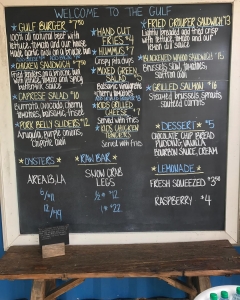 WELCOME TO THE GULF
GULF BURGER $7.50
lettuce, tomato and our house
made garlic aioli on a brioche bun
CHICKEN SANDWICH $7.50
Fried tenders on a brioche bun
lettuce, tomato and Spicy
buttermilk sauce
CAPRESE SALAD $10
Burrata, avocado, cherry
tomatoes, balsamic, frisee
PORK BELLY SLIDERS $12
Arugula, apple, onions,
chipotle aioli
HAND CUT
FRIES $4
HUMMUS $7
Crispy pita chips
MIXED GREEN
SALAD
Balsamic vinaigrette
cherry tomatoes
KIDS GRILLED
CHEESE
Served with fries
KIDS CHICKEN
TENDERS
Served with fries
FRIED GROUPER SANDWICH $13
Lightly breaded and fried crisp
with lettuce, tomato and our
lemon dill sauce
BLACKENED WAHOO SANDWICH $15
Brussels Slaw, tomatoes,
saffron aioli
GRILLED SALMON $16
roasted brussels sprouts,
sautéed carrots
DESSERT $5
CHOCOLATE CHIP BREAD
PUDDING, VANILLA
BOURBON SAUCE, CREAM
OYSTERS
AREA 13, LA
6/$11
12/$19
RAW BAR
SNOW CRAB
LEGS
½# $12
1# $22
LEMONADE
FRESH SQUEEZED $3.50
RASPBERRY $4